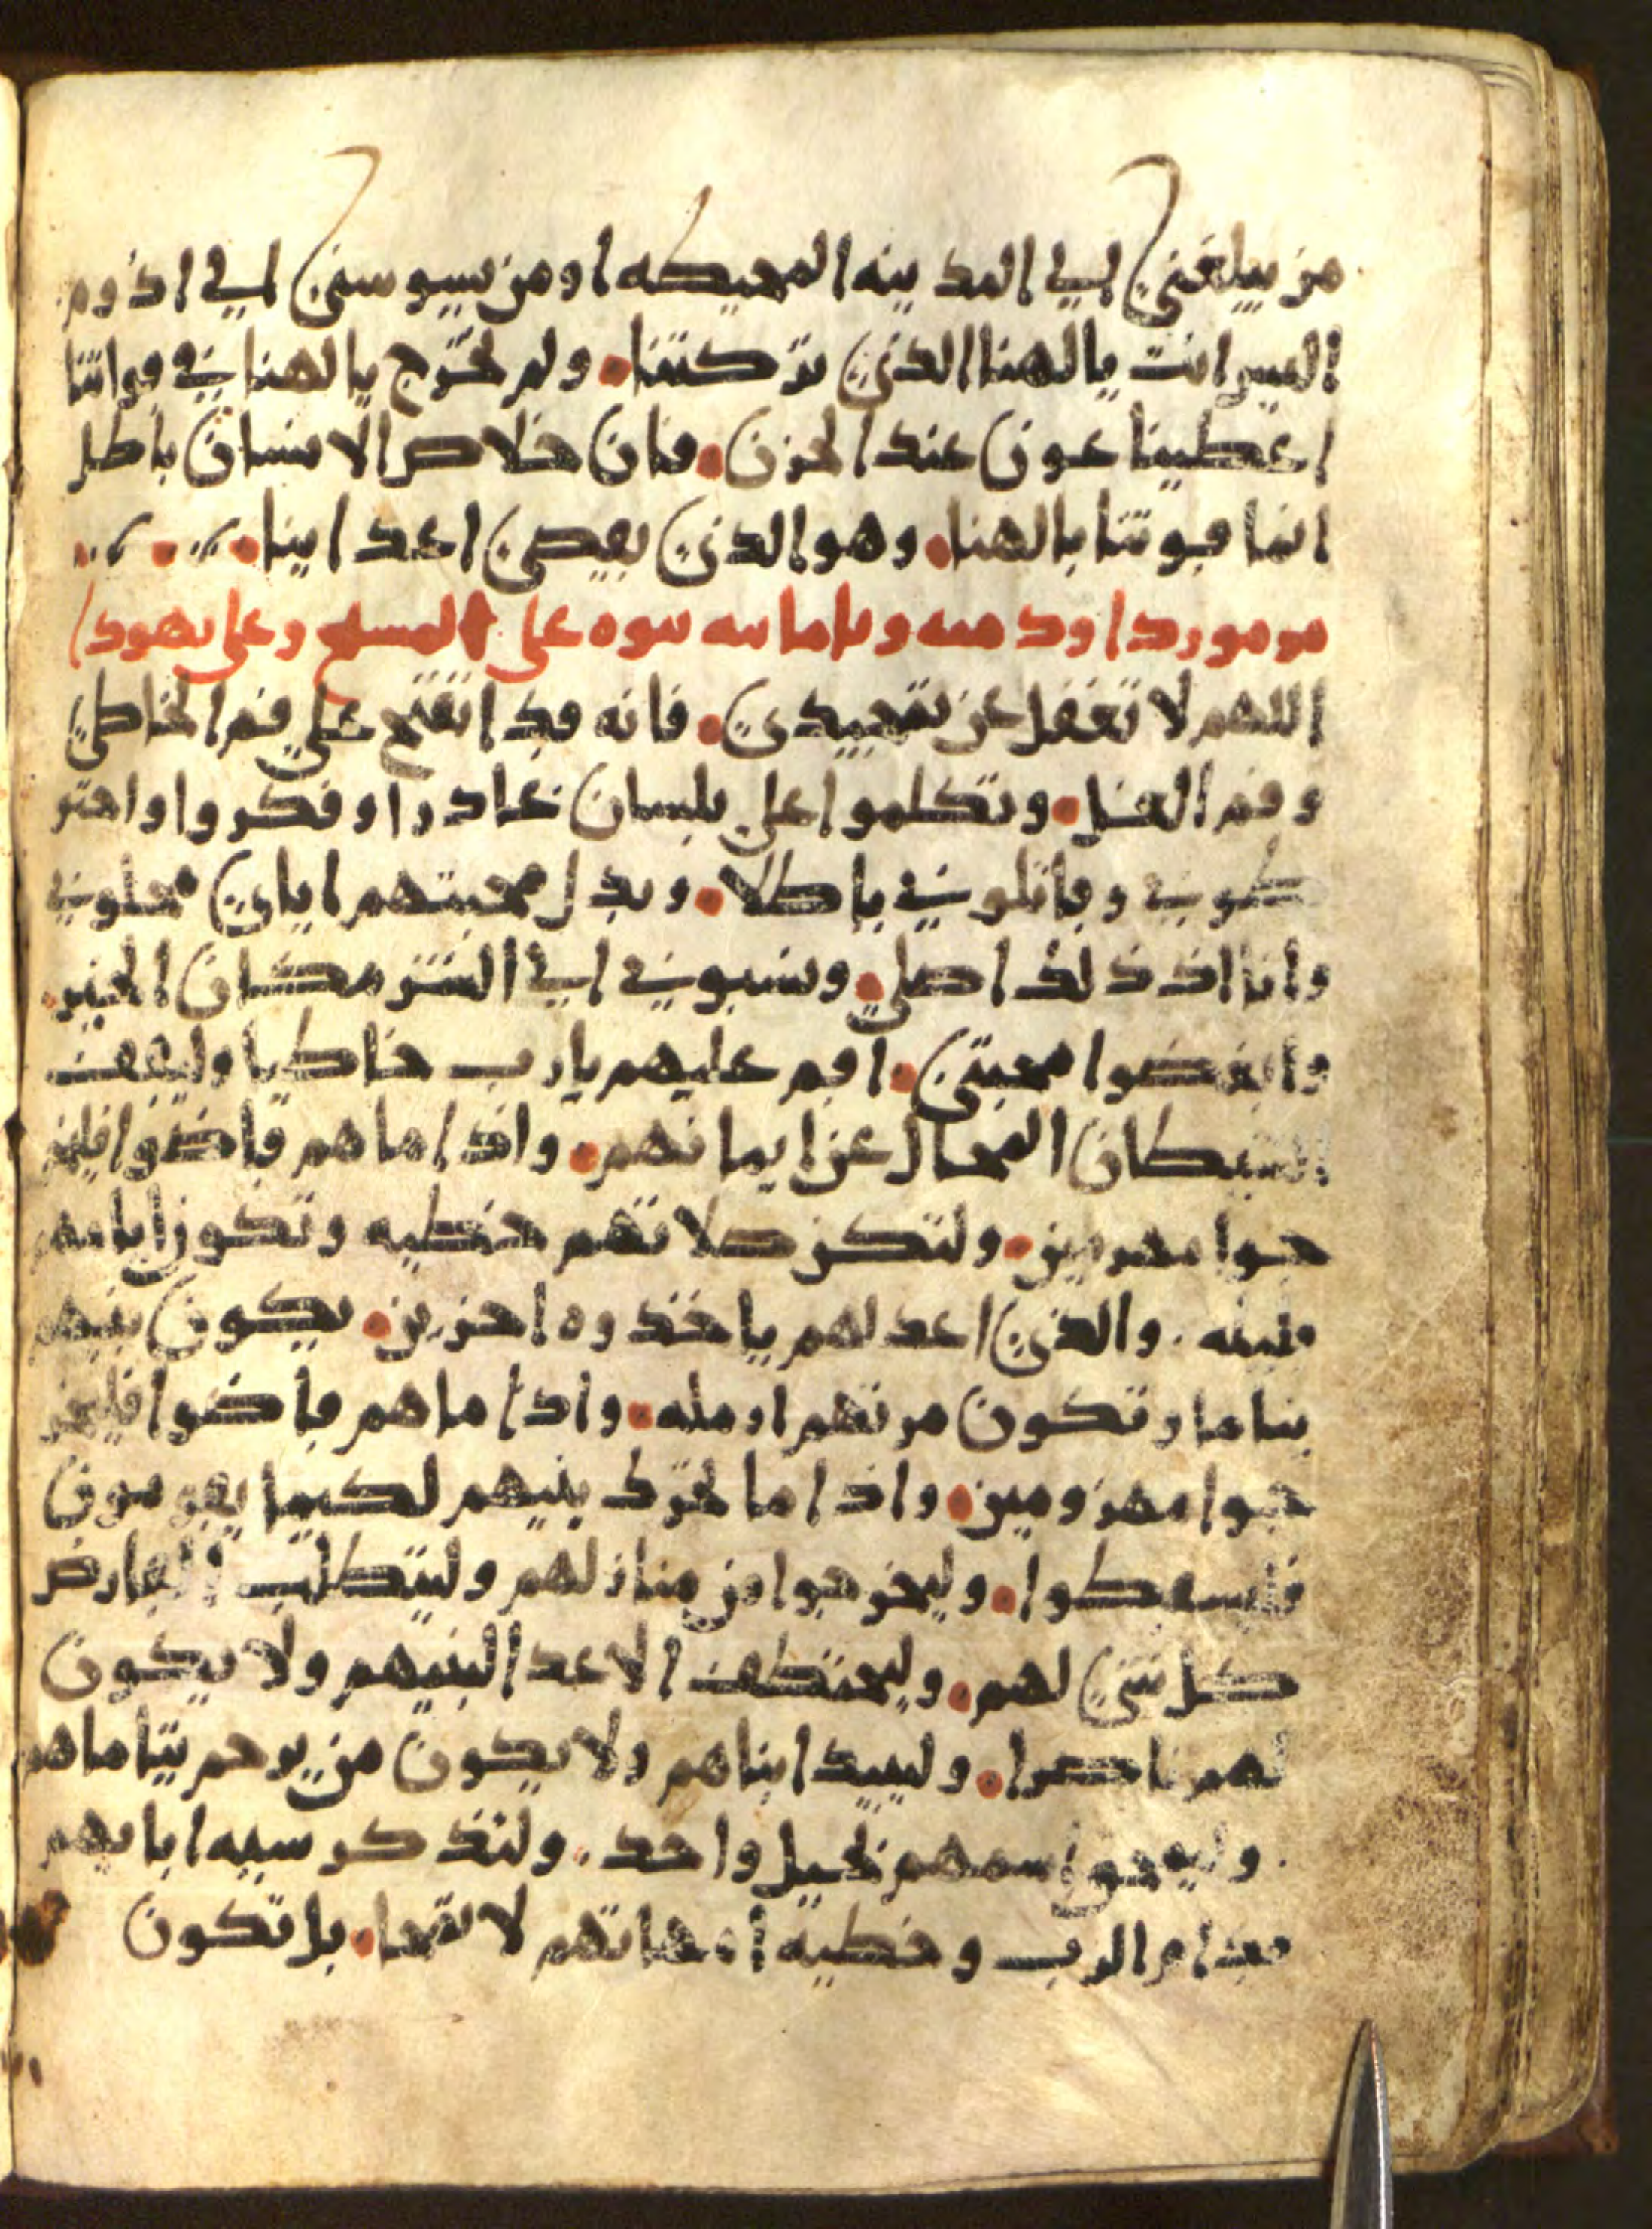 من يبلغني الي المدينه المحيطه او من يسوسني الي اذوم
اليس انت يالهنا الذي تركتنا • ولم تخرج يالهنا في قواتنا
اعطينا عون عند الحزن • فان خلاص الانسان باطل
انما قوتنا بالهنا • وهو الذي يقصي اعداينا •
مزمور داود ميه وثمانيه نبوه على المسيح وعلى يهودا
اللهم لا تغفل عن تمجيدي • فانه قد انفتح علي فم الخاطي
وفم الغل • وتكلموا علي بلسان غادرا وفكروا واحتو
كوني وقاتلوني باطلا • وبدل محبتهم اياي محلوني
وانا اذ ذلك اصلي • ونسبوني الي الشر مكان الخير •
وابغضوا محبتي • اقم عليهم يارب خاطيا وليقف
الشيطان المحال عن ايمانهم • واذا ما هم قاضوا فليخر
جوا مهزومين • ولتكن صلاتهم خطيه وتكون ايامهم
قليله . والذي اعد لهم ياخذوه اخرين • يكون بنيهم
يتاما وتكون مرتهم ارمله • واذا ما هم قاضوا فليخر
جوا مهزومين • واذا ما تحرك بنيهم لكيما يقومون
فليسقطوا • وليخرجوا من منازلهم وليتطلب القارض
كل شي لهم • وليختطف الاعدا لبنيهم ولا يكون
لهم ناصرا • وليبيد ابناهم ولا يكون من يرحم يتاماهم
. وليمحوا اسمهم بجيل واحد . ولتذكر سيه اباتهم
قدام الرب وخطية امهاتهم لا تمحا • بل تكون